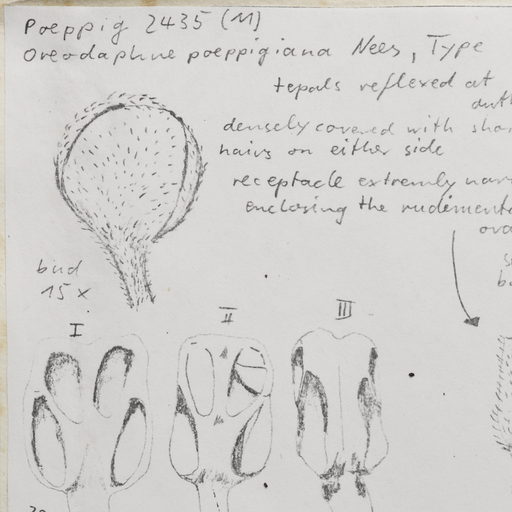 Poeppig 2435 (M)
Oreodaphne poeppigiana Nees, Type
tepals reflexed at
densely covered with
hairs on either side
receptacle extremly
enclosing the
bud
15 x
I II III